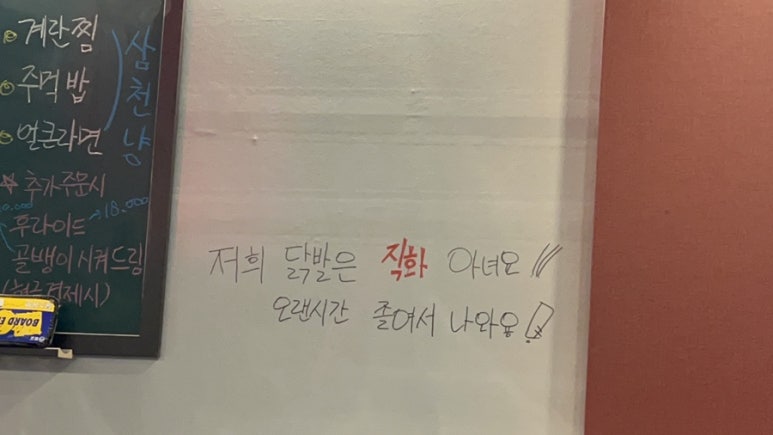 계란찜
주먹밥
얼큰라면
삼천냥
추가주문시
→18.000
후라이드
골뱅이 시켜드림
저희 닭발은 직화 아녀오
오랜시간 졸여서 나와용!
BOARD